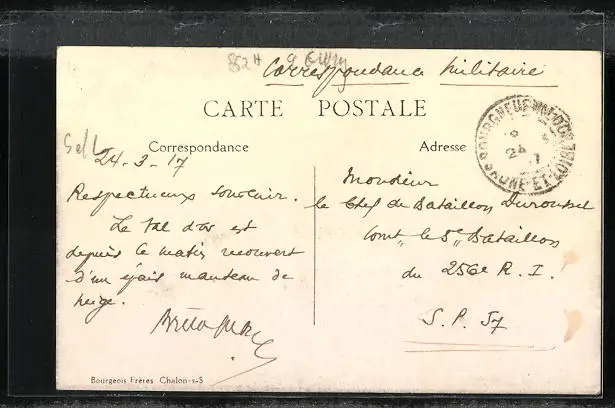 Correspondance Militaire
CARTE POSTALE
Correspondance
Adresse
24-3-17
Respectueux souvenir.
Le Val d'or est
depuis ce matin recouvert
d'un épais manteau de
neige.
Monsieur
le Chef de Bataillon
Comt le 5e Bataillon
du 256e R. I.
S. P. 57
SAONE-ET-LOIRE
Bourgeois Frères Chalon-s-S